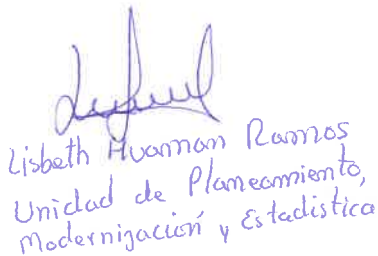 Lisbeth Huaman Ramos
Unidad de Planeamiento,
Modernización y Estadistica